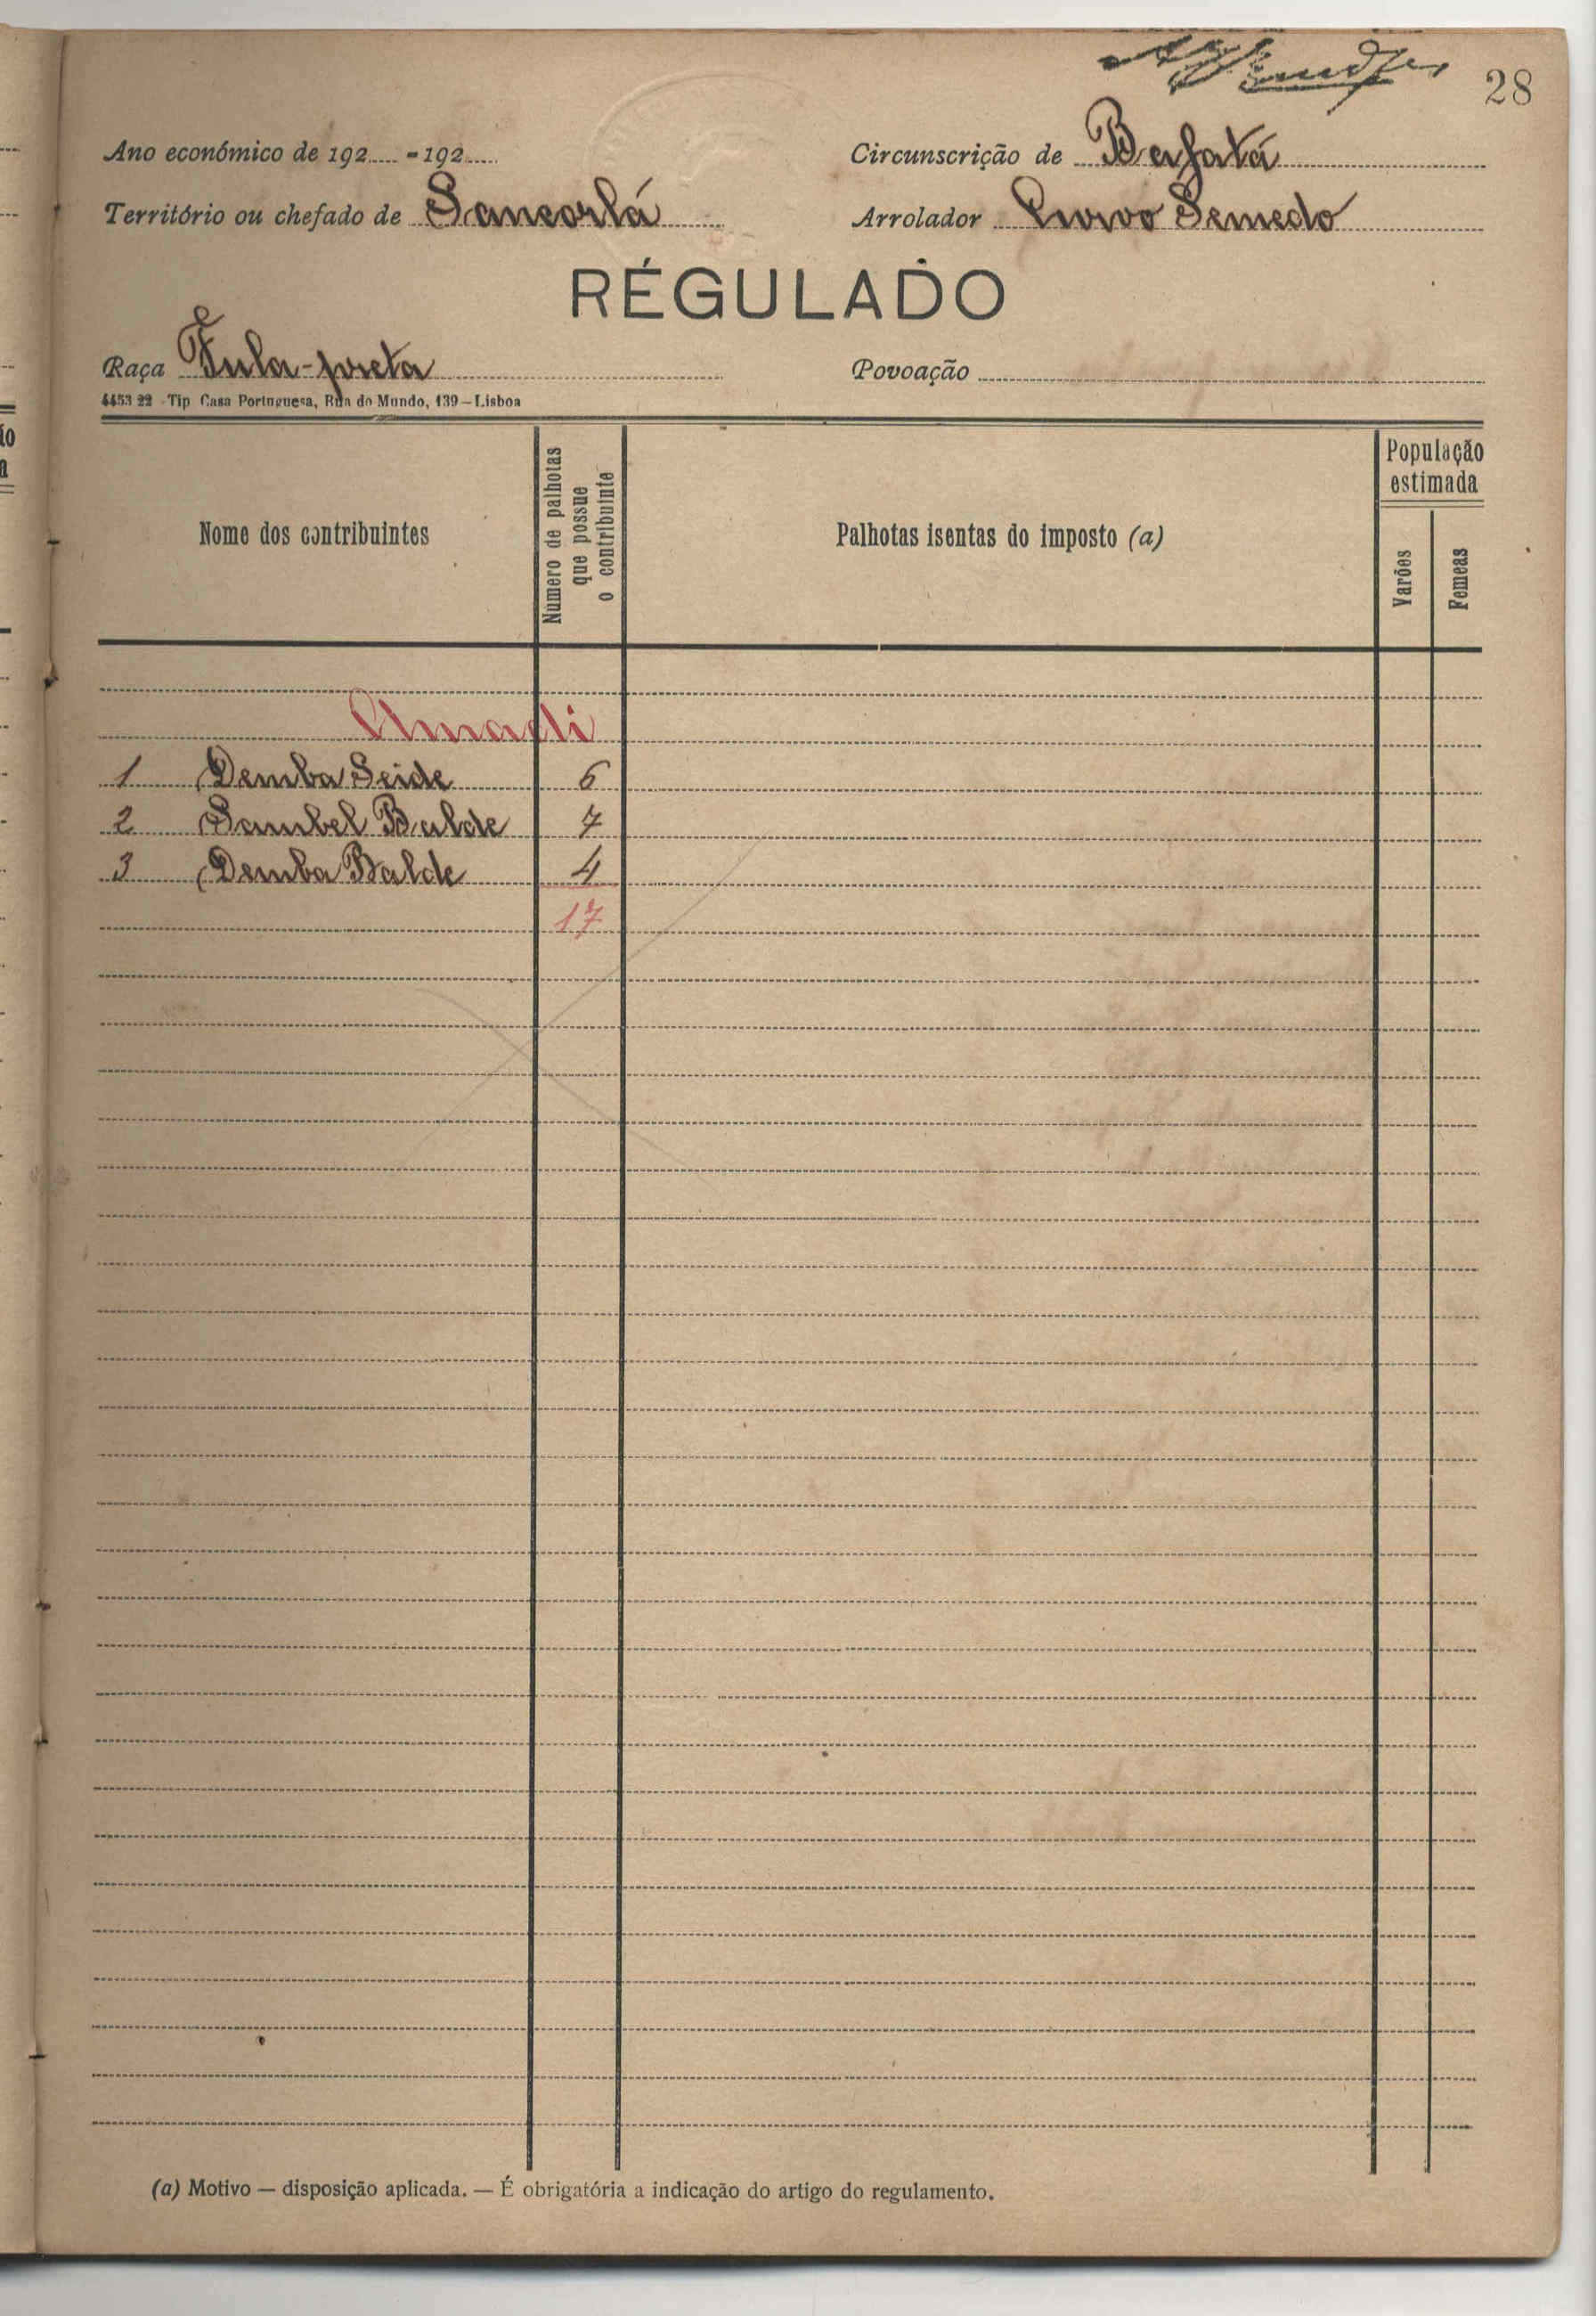 28
Ano económico de 192..... - 192.....
Circunscrição de Bafatá
Território ou chefado de Sancorlá
Arrolador Purvo Semedo
RÉGULADO
Raça Fula-preta
Povoação
4453 22 - Tip Casa Portuguesa, Rua do Mundo, 139 - Lisboa
Nome dos contribuintes
Número de palhotas que possue o contribuinte
Palhotas isentas do imposto (a)
População estimada
Varões
Femeas
Amadi
1 Demba Seide 6
2 Sambel Balde 7
3 Demba Balde 4
17
(a) Motivo — disposição aplicada. — É obrigatória a indicação do artigo do regulamento.